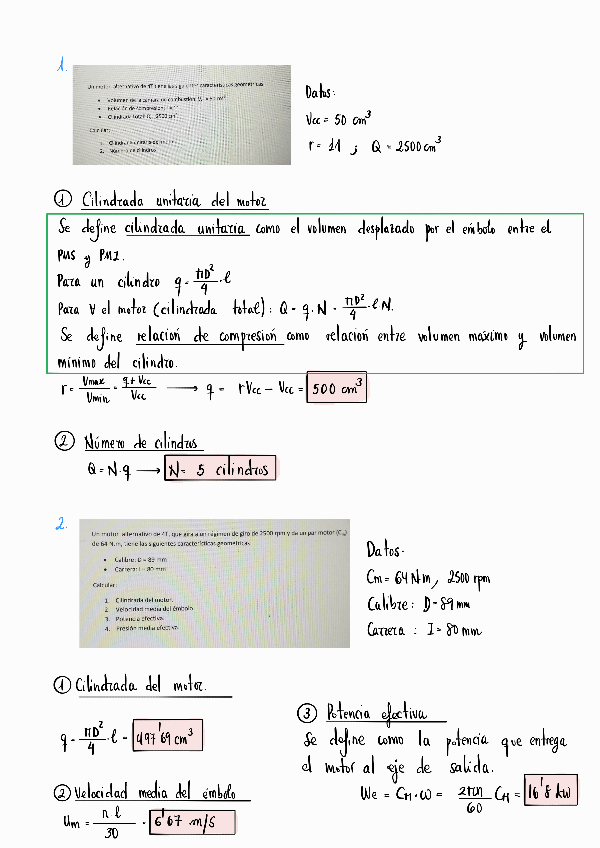 1.
Un motor alternativo de 4T tiene las siguientes características geométricas
Volumen de la cámara de combustión:
Relación de compresión:
Cilindrada total: 2500 cm³
Calcular:
1. Cilindrada unitaria del motor.
2. Número de cilindros
Datos:
Vcc = 50 cm³
r = 11 ; Q = 2500 cm³
① Cilindrada unitaria del motor
Se define cilindrada unitaria como el volumen desplazado por el émbolo entre el
PMS y PMI.
Para un cilindro q = πD²/4 · l
Para ∀ el motor (cilindrada total): Q = q·N = πD²/4 · l N.
Se define relación de compresión como relación entre volumen máximo y volumen
mínimo del cilindro.
r = Vmax/Vmin = q+Vcc/Vcc → q = rVcc − Vcc = 500 cm³
② Número de cilindros
Q = N·q → N = 5 cilindros
2.
Un motor alternativo de 4T, que gira a un régimen de giro de 2500 rpm y da un par motor (Cm)
de 64 N.m, tiene las siguientes características geométricas
Calibre: D = 89 mm
Carrera: l = 80 mm
Calcular:
1. Cilindrada del motor.
2. Velocidad media del émbolo.
3. Potencia efectiva.
4. Presión media efectiva
Datos.
Cm = 64 N·m, 2500 rpm
Calibre: D = 89 mm
Carrera : I = 80 mm
① Cilindrada del motor.
q = πD²/4 · l = 497'69 cm³
② Velocidad media del émbolo
Um = n l/30 = 6'67 m/s
③ Potencia efectiva
Se define como la potencia que entrega
el motor al eje de salida.
We = CM · ω = 2πn/60 CM = 16'8 kW